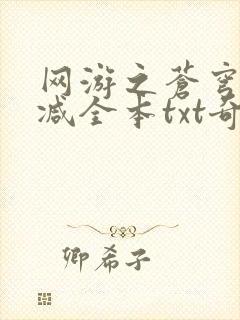 网游之苍穹
减全本txt奇
卿希子